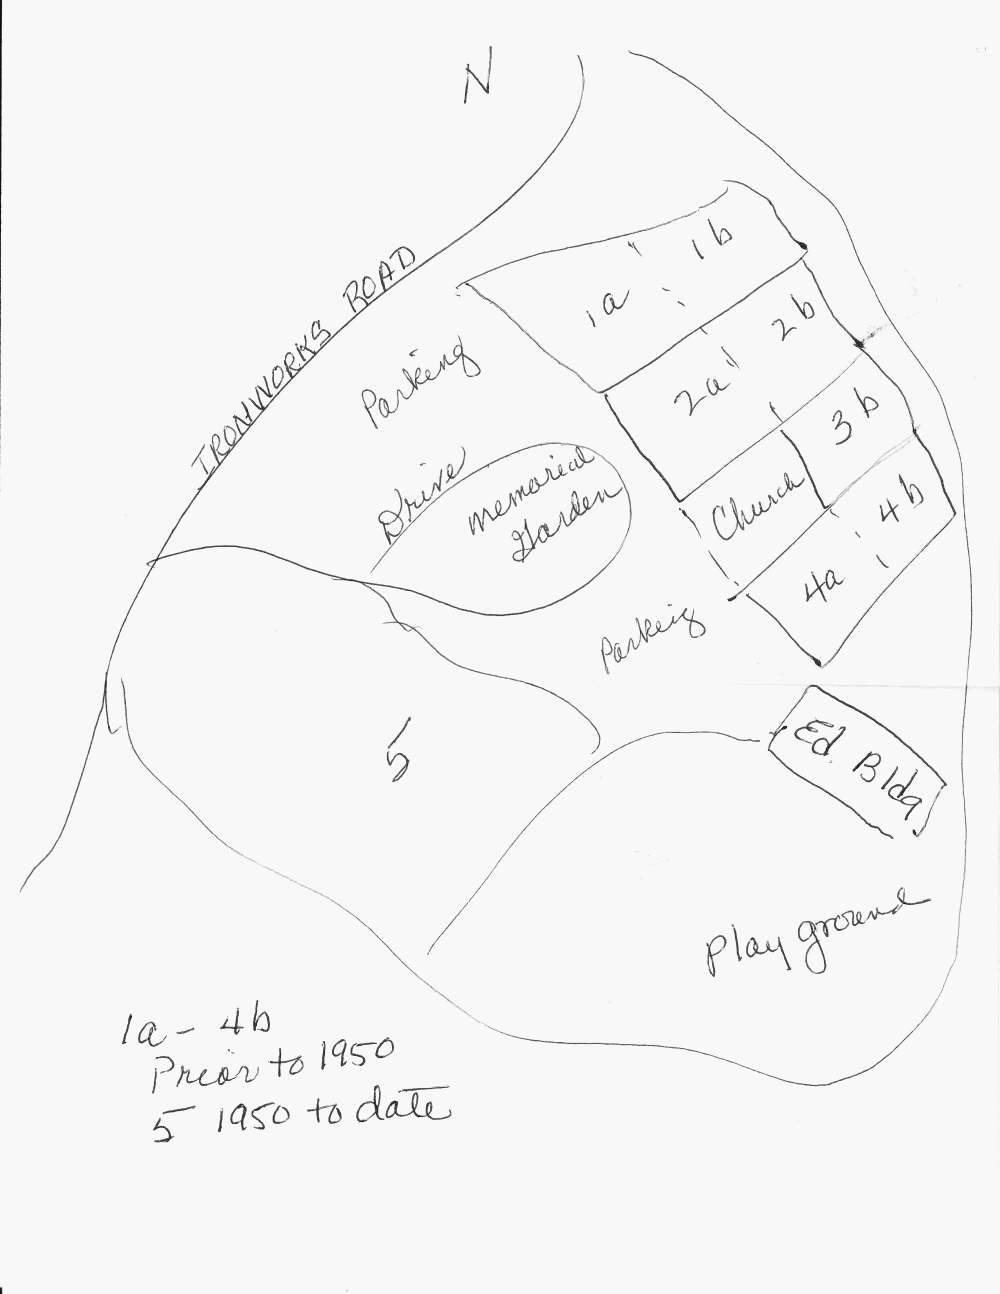 N
IRONWORKS ROAD
1a
1b
Parking
2a
2b
3b
Drive
memorial
Garden
Church
4a
4b
Parking
5
Ed Bldg
Playground
1a - 4b
Prior to 1950
5 1950 to date